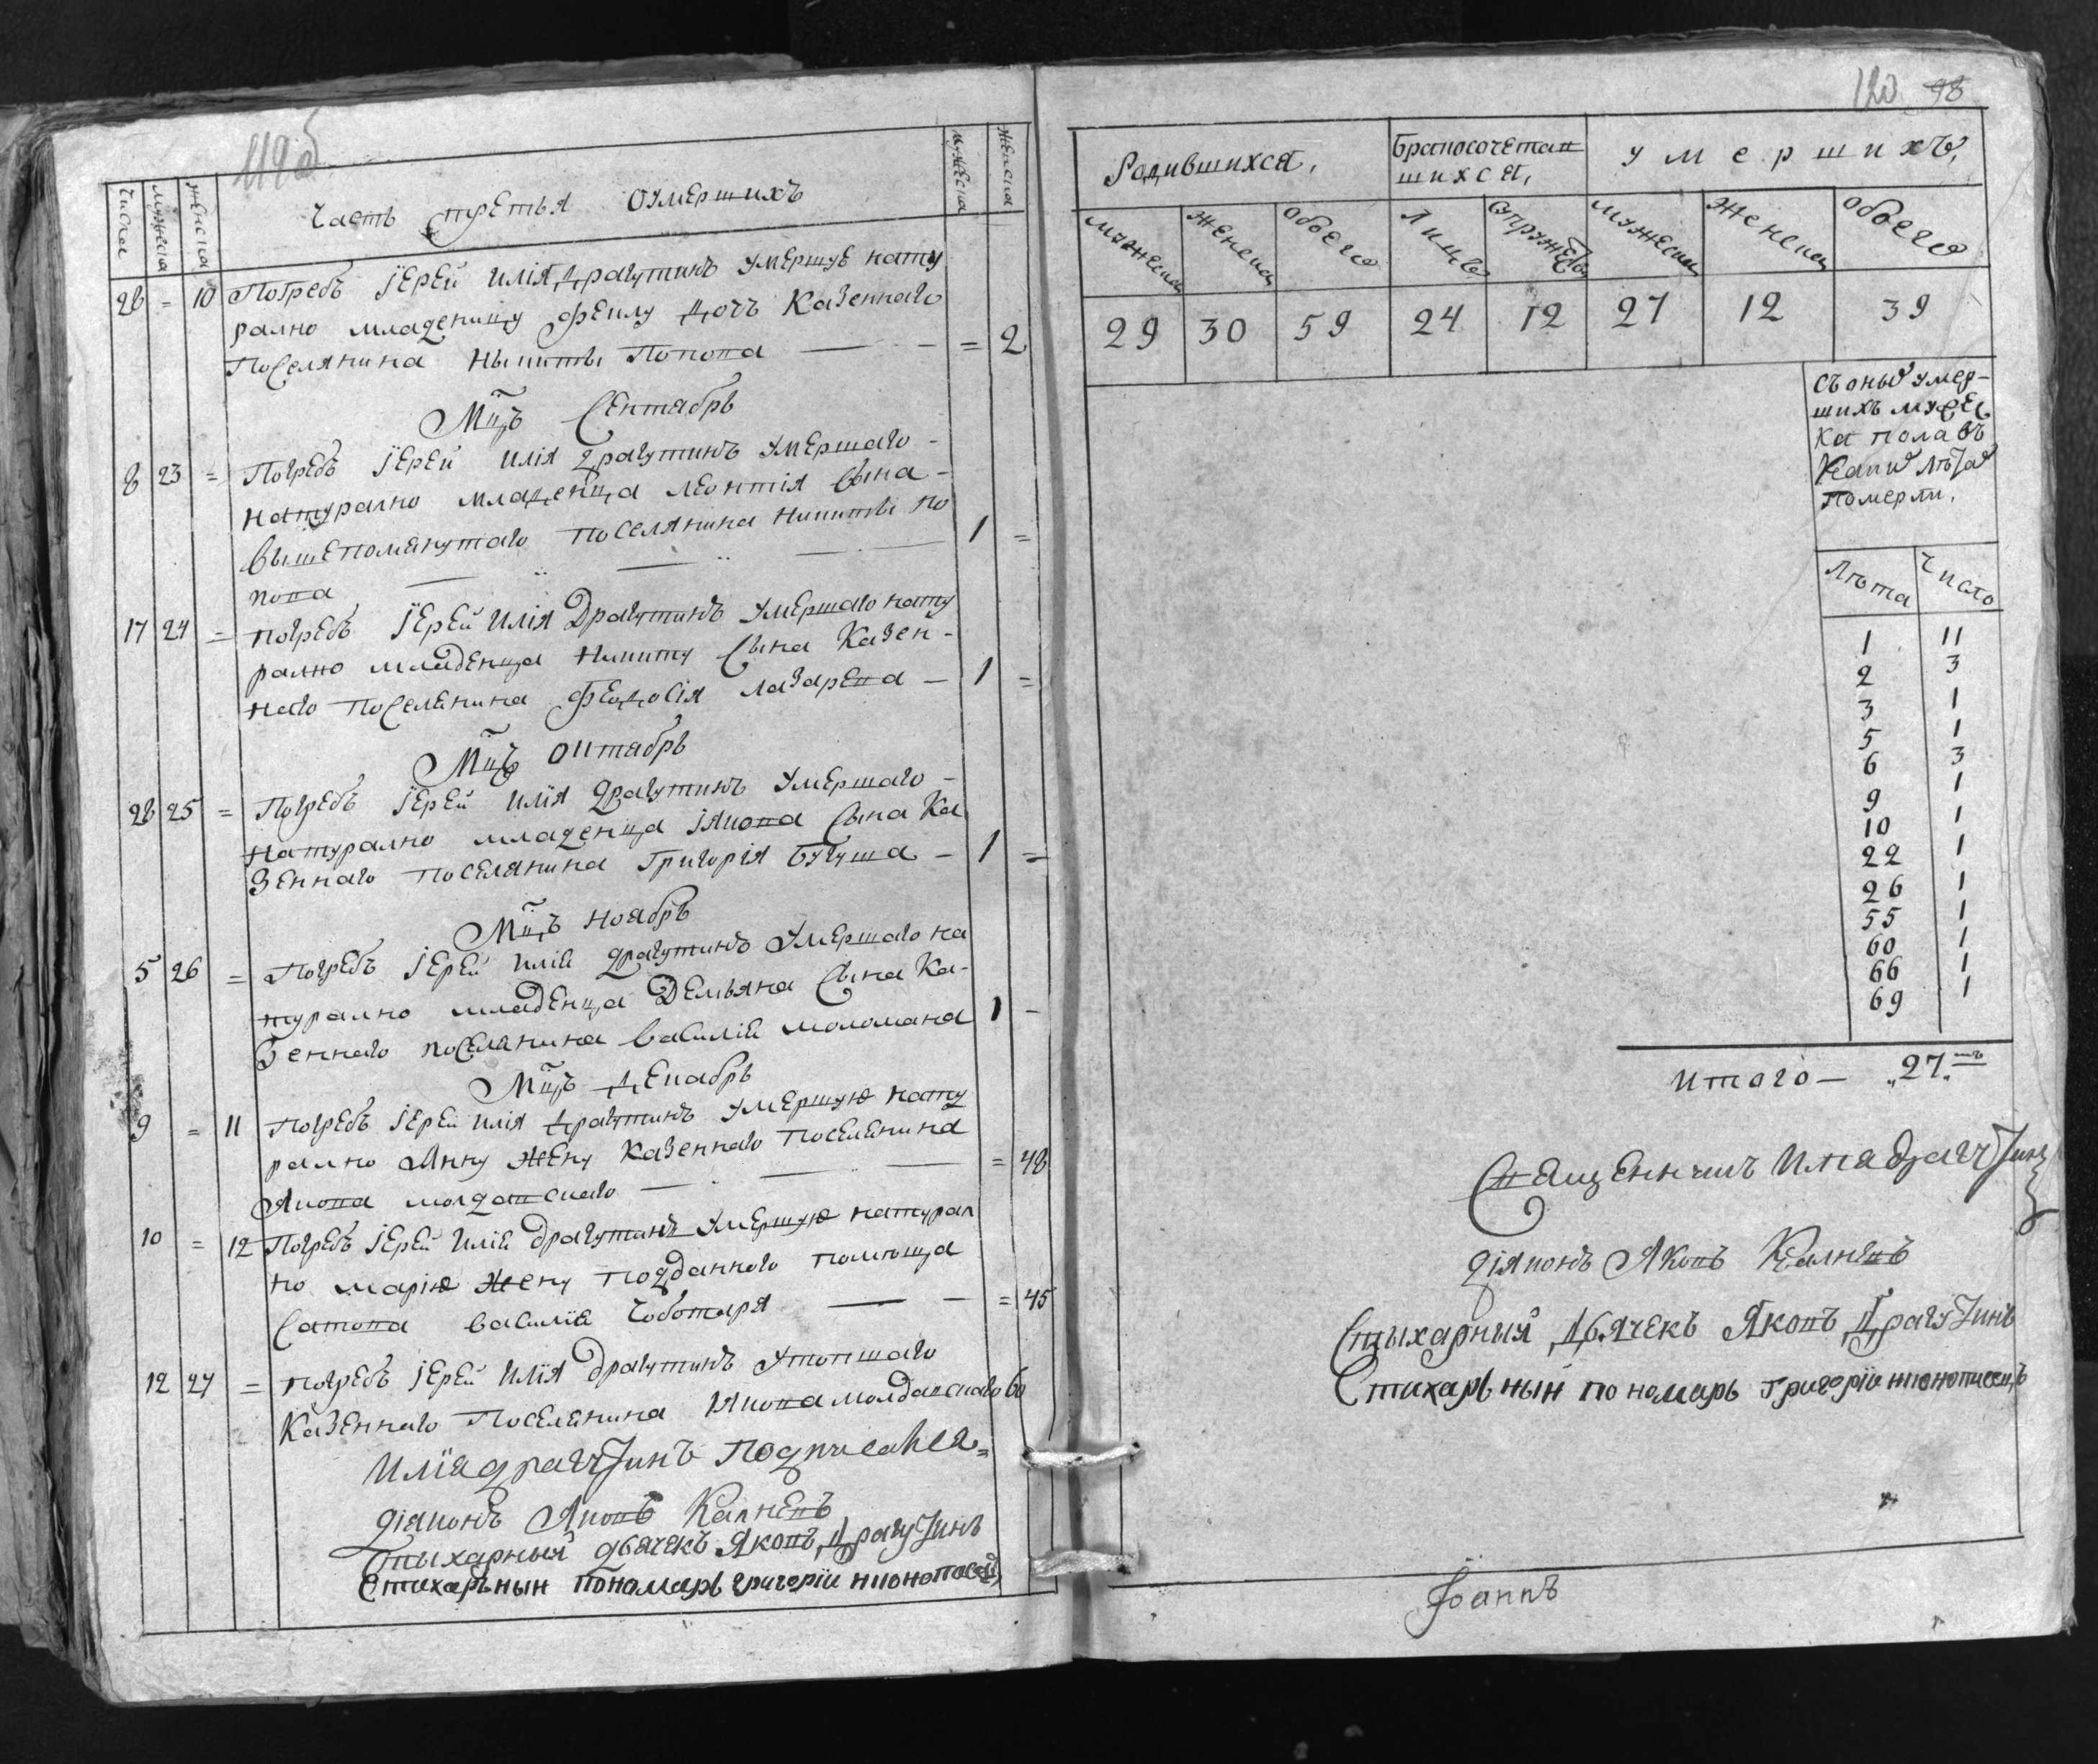 119об
Числа мужеска женска Часть третья оумершихъ мужеска женска
28 = 10 Погребъ Іерей Илія Драгутинъ умершую нату
рално младеницу Феклу дочъ Казеннаго
Поселянина Никиты Попова — = 2
Мцъ Сентябрь
8 23 = Погребъ Іерей Илія Драгутинъ умершаго -
натурално младенца Леонтія сына -
вышепомянутаго поселянина Никиты По
пова — 1 =
17 24 = погребъ Іерей Илія Драгутинъ умершаго нату
рално младенца Никиту сына Казен -
наго поселянина Феодосія Лазарева — 1 =
Мцъ Октябрь
28 25 = Погребъ Іерей Илія Драгутинъ умершаго -
натурално младенца Іякова сына Ка
зеннаго поселянина Григорія Бугуша — 1 =
Мцъ Ноябрь
5 26 = Погребъ Іерей Илія Драгутинъ умершаго на
турално младенца Демьяна сына Ка-
зеннаго поселянина Василія Моломана 1 -
Мцъ Декабрь
9 = 11 Погребъ Іерей Илія Драгутинъ умершую нату
рално Анну жену Казеннаго поселянина
Якова Молдавскаго — = 48
10 = 12 Погребъ Іерей Илія Драгутинъ умершую натурал
но Марію жену подданного помѣщика
Василія Чоботаря — = 45
12 27 = погребъ Іерей Илія Драгутинъ утопшаго
Казеннаго Поселянина Іякова Молдавскаго 60
Илія Драгутинъ подписался =
діяконъ Яковъ Калневъ
Стыхарный дьячекъ Яковъ Драгутинъ
Стихарьнын пономарь Григорїи
120 98
Родившихся, Бракосочетав
шихся, умершихъ,
мужеска женска обоего Лицъ супружествъ мужеска женска обоего
29 30 59 24 12 27 12 39
съ оныхъ умер-
шихъ мужес
ка пола въ
какихъ лѣтахъ
померли,
Лѣта Число
1 11
2 3
3 1
5 1
6 3
9 1
10 1
22 1
26 1
55 1
60 1
66 1
69 1
Итого — „27„
Священникъ Илія Драгутинъ
діяконъ Яковъ Калневъ
Стыхарный Дьячекъ Яковъ Драгутинъ
Стихарьный пономарь Григорїи
Іоаннъ